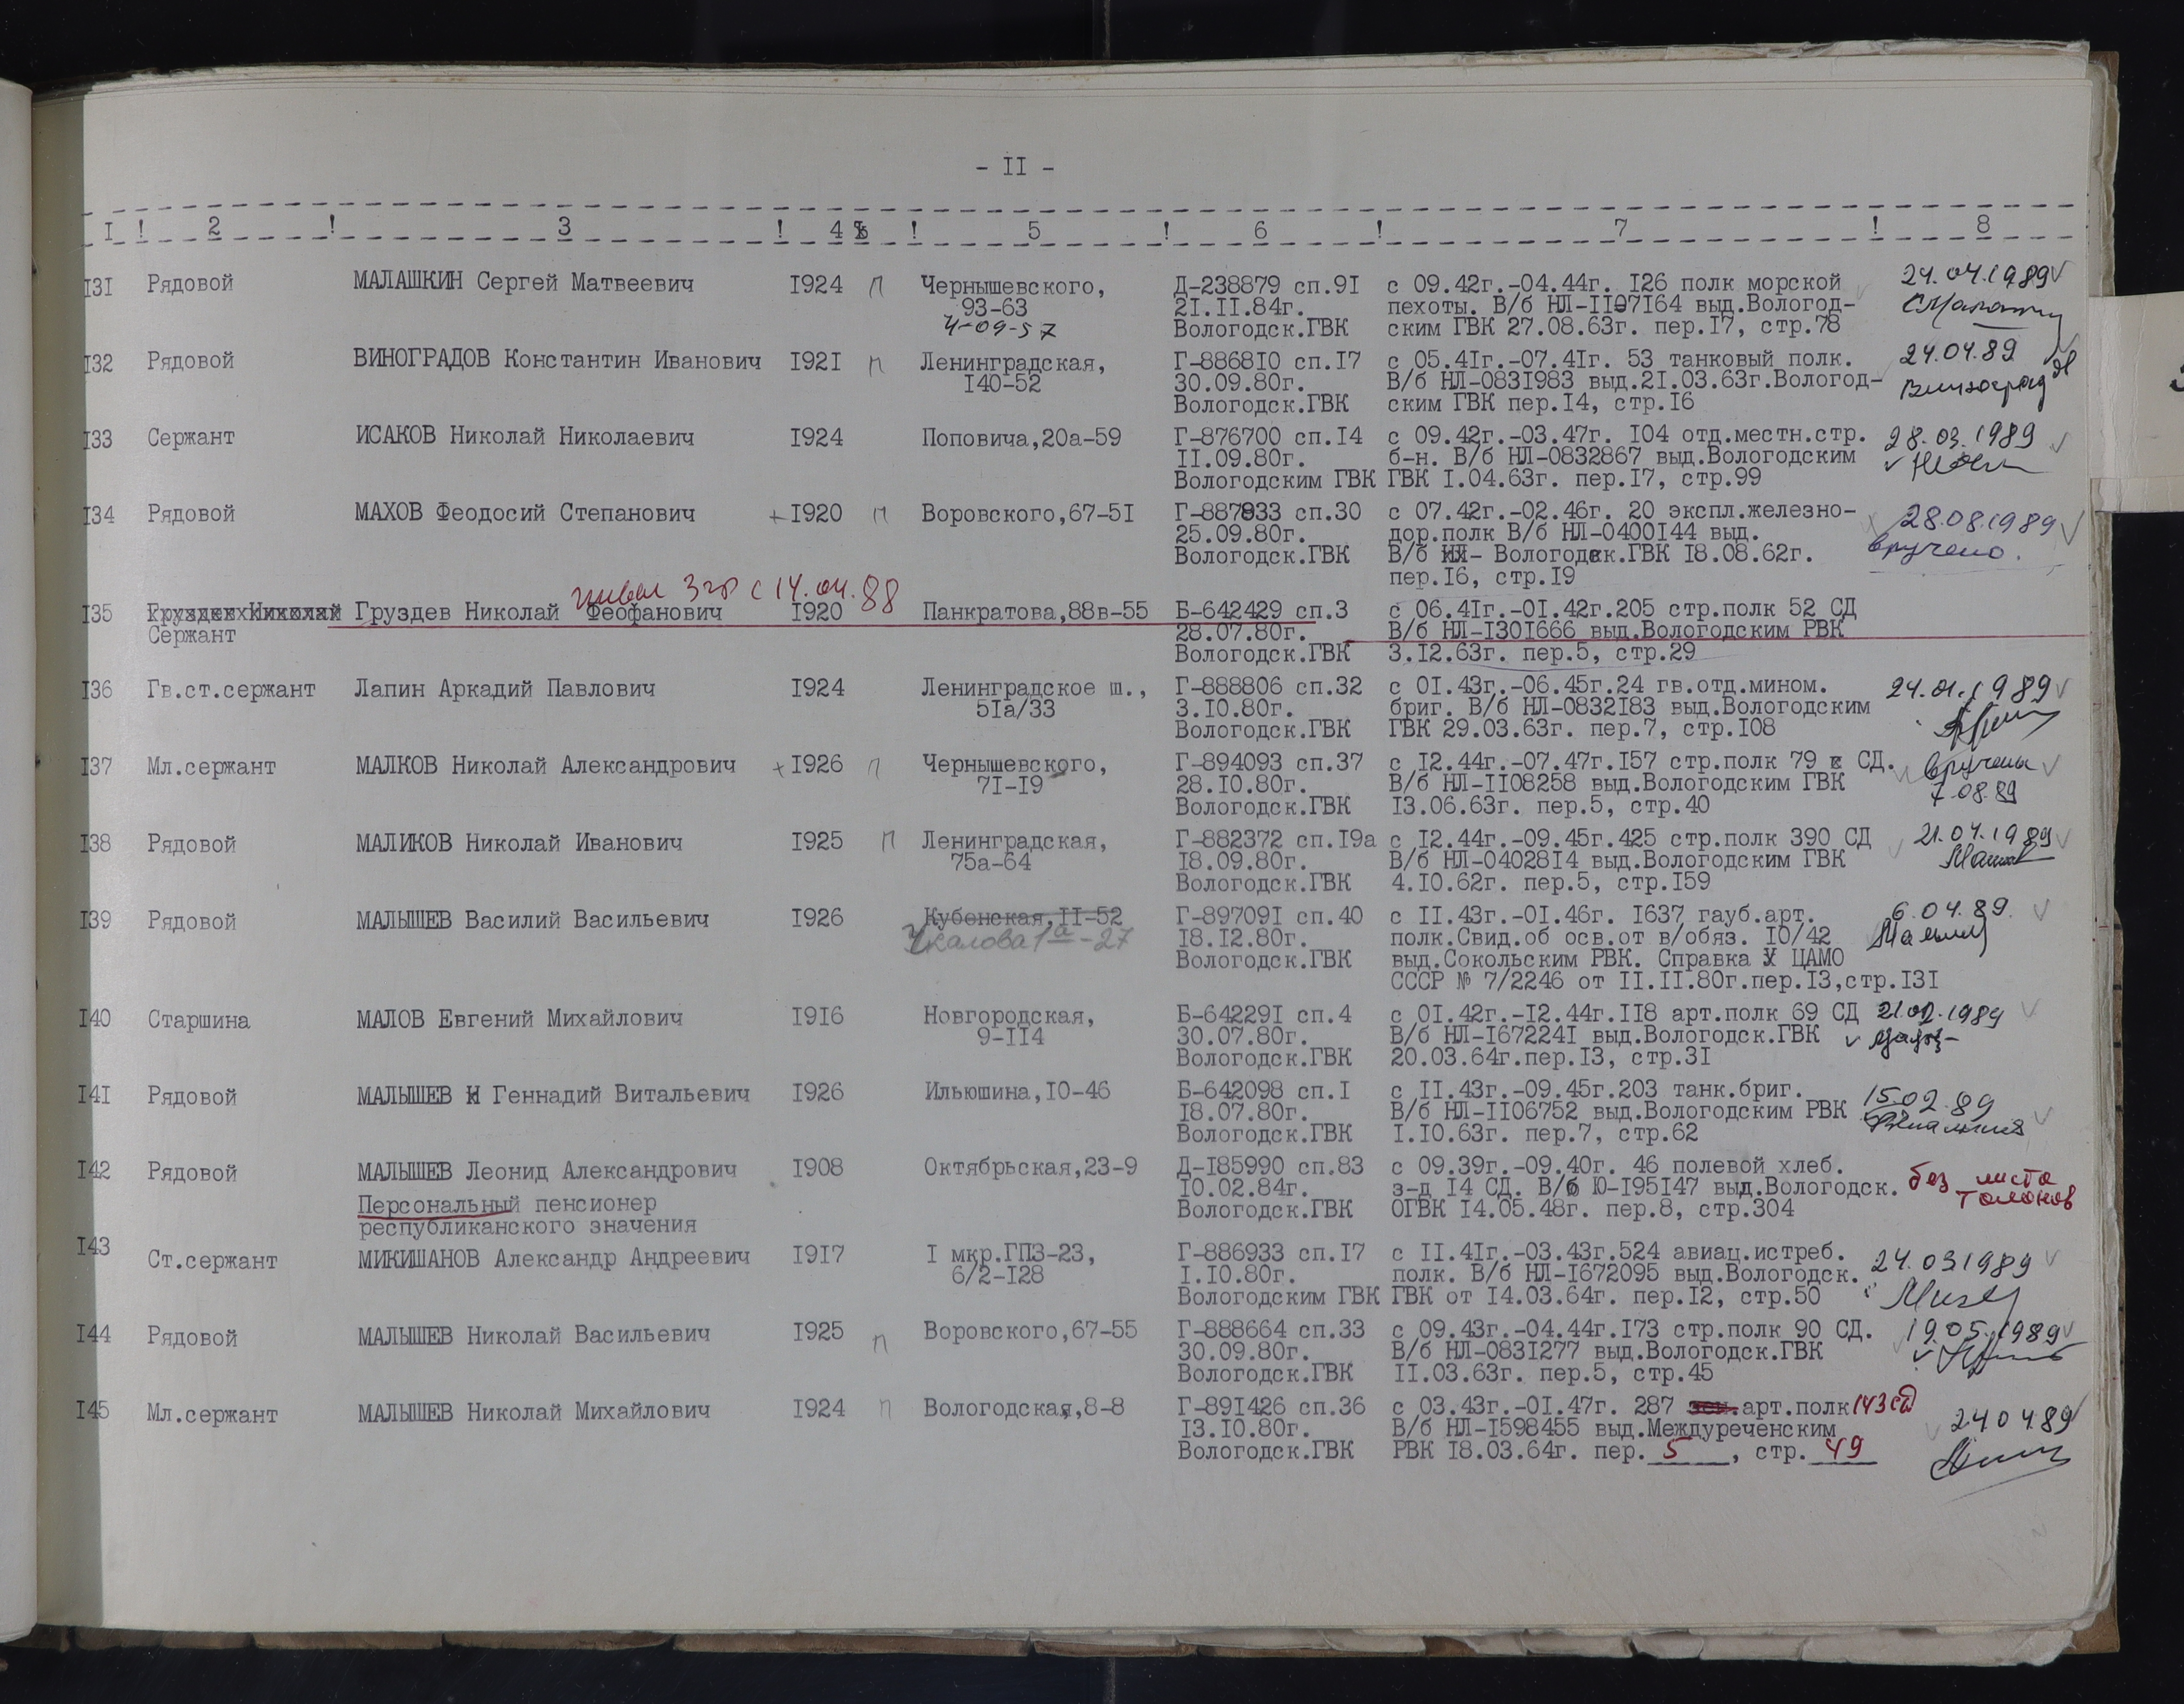 - II -
I ! 2 ! 3 ! 4 ! 5 ! 6 ! 7 ! 8
I3I Рядовой МАЛАШКИН Сергей Матвеевич I924 п Чернышевского, Д-238879 сп.9I с 09.42г.-04.44г. I26 полк морской 24.04.1989
93-63 2I.II.84г. пехоты. В/б НЛ-II07I64 выд.Вологод-
4-09-57 Вологодск.ГВК ским ГВК 27.08.63г. пер.I7, стр.78
I32 Рядовой ВИНОГРАДОВ Константин Иванович I92I п Ленинградская, Г-8868I0 сп.I7 с 05.4Iг.-07.4Iг. 53 танковый полк. 24.04.89
I40-52 30.09.80г. В/б НЛ-083I983 выд.2I.03.63г.Вологод-
Вологодск.ГВК ским ГВК пер.I4, стр.I6
I33 Сержант ИСАКОВ Николай Николаевич I924 Поповича,20а-59 Г-876700 сп.I4 с 09.42г.-03.47г. I04 отд.местн.стр. 28.03.1989
II.09.80г. б-н. В/б НЛ-0832867 выд.Вологодским
Вологодским ГВК ГВК I.04.63г. пер.I7, стр.99
I34 Рядовой МАХОВ Феодосий Степанович + I920 п Воровского,67-5I Г-887833 сп.30 с 07.42г.-02.46г. 20 экспл.железно- 28.08.1989
25.09.80г. дор.полк В/б НЛ-0400I44 выд. вручено.
Вологодск.ГВК В/б НЛ- Вологодск.ГВК I8.08.62г.
пер.I6, стр.I9
с 14.04.88
I35 Груздев Николай Груздев Николай Феофанович I920 Панкратова,88в-55 Б-642429 сп.3 с 06.4Iг.-0I.42г.205 стр.полк 52 СД
Сержант 28.07.80г. В/б НЛ-I30I666 выд.Вологодским РВК
Вологодск.ГВК 3.I2.63г. пер.5, стр.29
I36 Гв.ст.сержант Лапин Аркадий Павлович I924 Ленинградское ш., Г-888806 сп.32 с 0I.43г.-06.45г.24 гв.отд.мином. 24.01.1989
5Iа/33 3.I0.80г. бриг. В/б НЛ-0832I83 выд.Вологодским
Вологодск.ГВК ГВК 29.03.63г. пер.7, стр.I08
I37 Мл.сержант МАЛКОВ Николай Александрович + I926 п Чернышевского, Г-894093 сп.37 с I2.44г.-07.47г.I57 стр.полк 79 СД. вручены
7I-I9 28.I0.80г. В/б НЛ-II08258 выд.Вологодским ГВК 7.08.89
Вологодск.ГВК I3.06.63г. пер.5, стр.40
I38 Рядовой МАЛИКОВ Николай Иванович I925 п Ленинградская, Г-882372 сп.I9а с I2.44г.-09.45г.425 стр.полк 390 СД 21.04.1989
75а-64 I8.09.80г. В/б НЛ-04028I4 выд.Вологодским ГВК
Вологодск.ГВК 4.I0.62г. пер.5, стр.I59
I39 Рядовой МАЛЫШЕВ Василий Васильевич I926 Кубенская,II-52 Г-89709I сп.40 с II.43г.-0I.46г. I637 гауб.арт. 6.04.89
Чкалова 1а-27 I8.I2.80г. полк.Свид.об осв.от в/обяз. I0/42
Вологодск.ГВК выд.Сокольским РВК. Справка ЦАМО
СССР № 7/2246 от II.II.80г.пер.I3,стр.I3I
I40 Старшина МАЛОВ Евгений Михайлович I9I6 Новгородская, Б-64229I сп.4 с 0I.42г.-I2.44г.II8 арт.полк 69 СД 21.02.1989
9-II4 30.07.80г. В/б НЛ-I67224I выд.Вологодск.ГВК
Вологодск.ГВК 20.03.64г.пер.I3, стр.3I
I4I Рядовой МАЛЫШЕВ Н Геннадий Витальевич I926 Ильюшина,I0-46 Б-642098 сп.I с II.43г.-09.45г.203 танк.бриг. 15.02.89
I8.07.80г. В/б НЛ-II06752 выд.Вологодским РВК
Вологодск.ГВК I.I0.63г. пер.7, стр.62
I42 Рядовой МАЛЫШЕВ Леонид Александрович I908 Октябрьская,23-9 Д-I85990 сп.83 с 09.39г.-09.40г. 46 полевой хлеб. без листа
Персональный пенсионер I0.02.84г. з-д I4 СД. В/б Ю-I95I47 выд.Вологодск. талонов
республиканского значения Вологодск.ГВК ОГВК I4.05.48г. пер.8, стр.304
I43 Ст.сержант МИКИШАНОВ Александр Андреевич I9I7 I мкр.ГПЗ-23, Г-886933 сп.I7 с II.4Iг.-03.43г.524 авиац.истреб. 24.03.1989
6/2-I28 I.I0.80г. полк. В/б НЛ-I672095 выд.Вологодск.
Вологодским ГВК ГВК от I4.03.64г. пер.I2, стр.50
I44 Рядовой МАЛЫШЕВ Николай Васильевич I925 п Воровского,67-55 Г-888664 сп.33 с 09.43г.-04.44г.I73 стр.полк 90 СД. 19.05.1989
30.09.80г. В/б НЛ-083I277 выд.Вологодск.ГВК
Вологодск.ГВК II.03.63г. пер.5, стр.45
I45 Мл.сержант МАЛЫШЕВ Николай Михайлович I924 п Вологодская,8-8 Г-89I426 сп.36 с 03.43г.-0I.47г. 287 арт.полк 143 сд 24.04.89
I3.I0.80г. В/б НЛ-I598455 выд.Междуреченским
Вологодск.ГВК РВК I8.03.64г. пер. 5, стр. 49